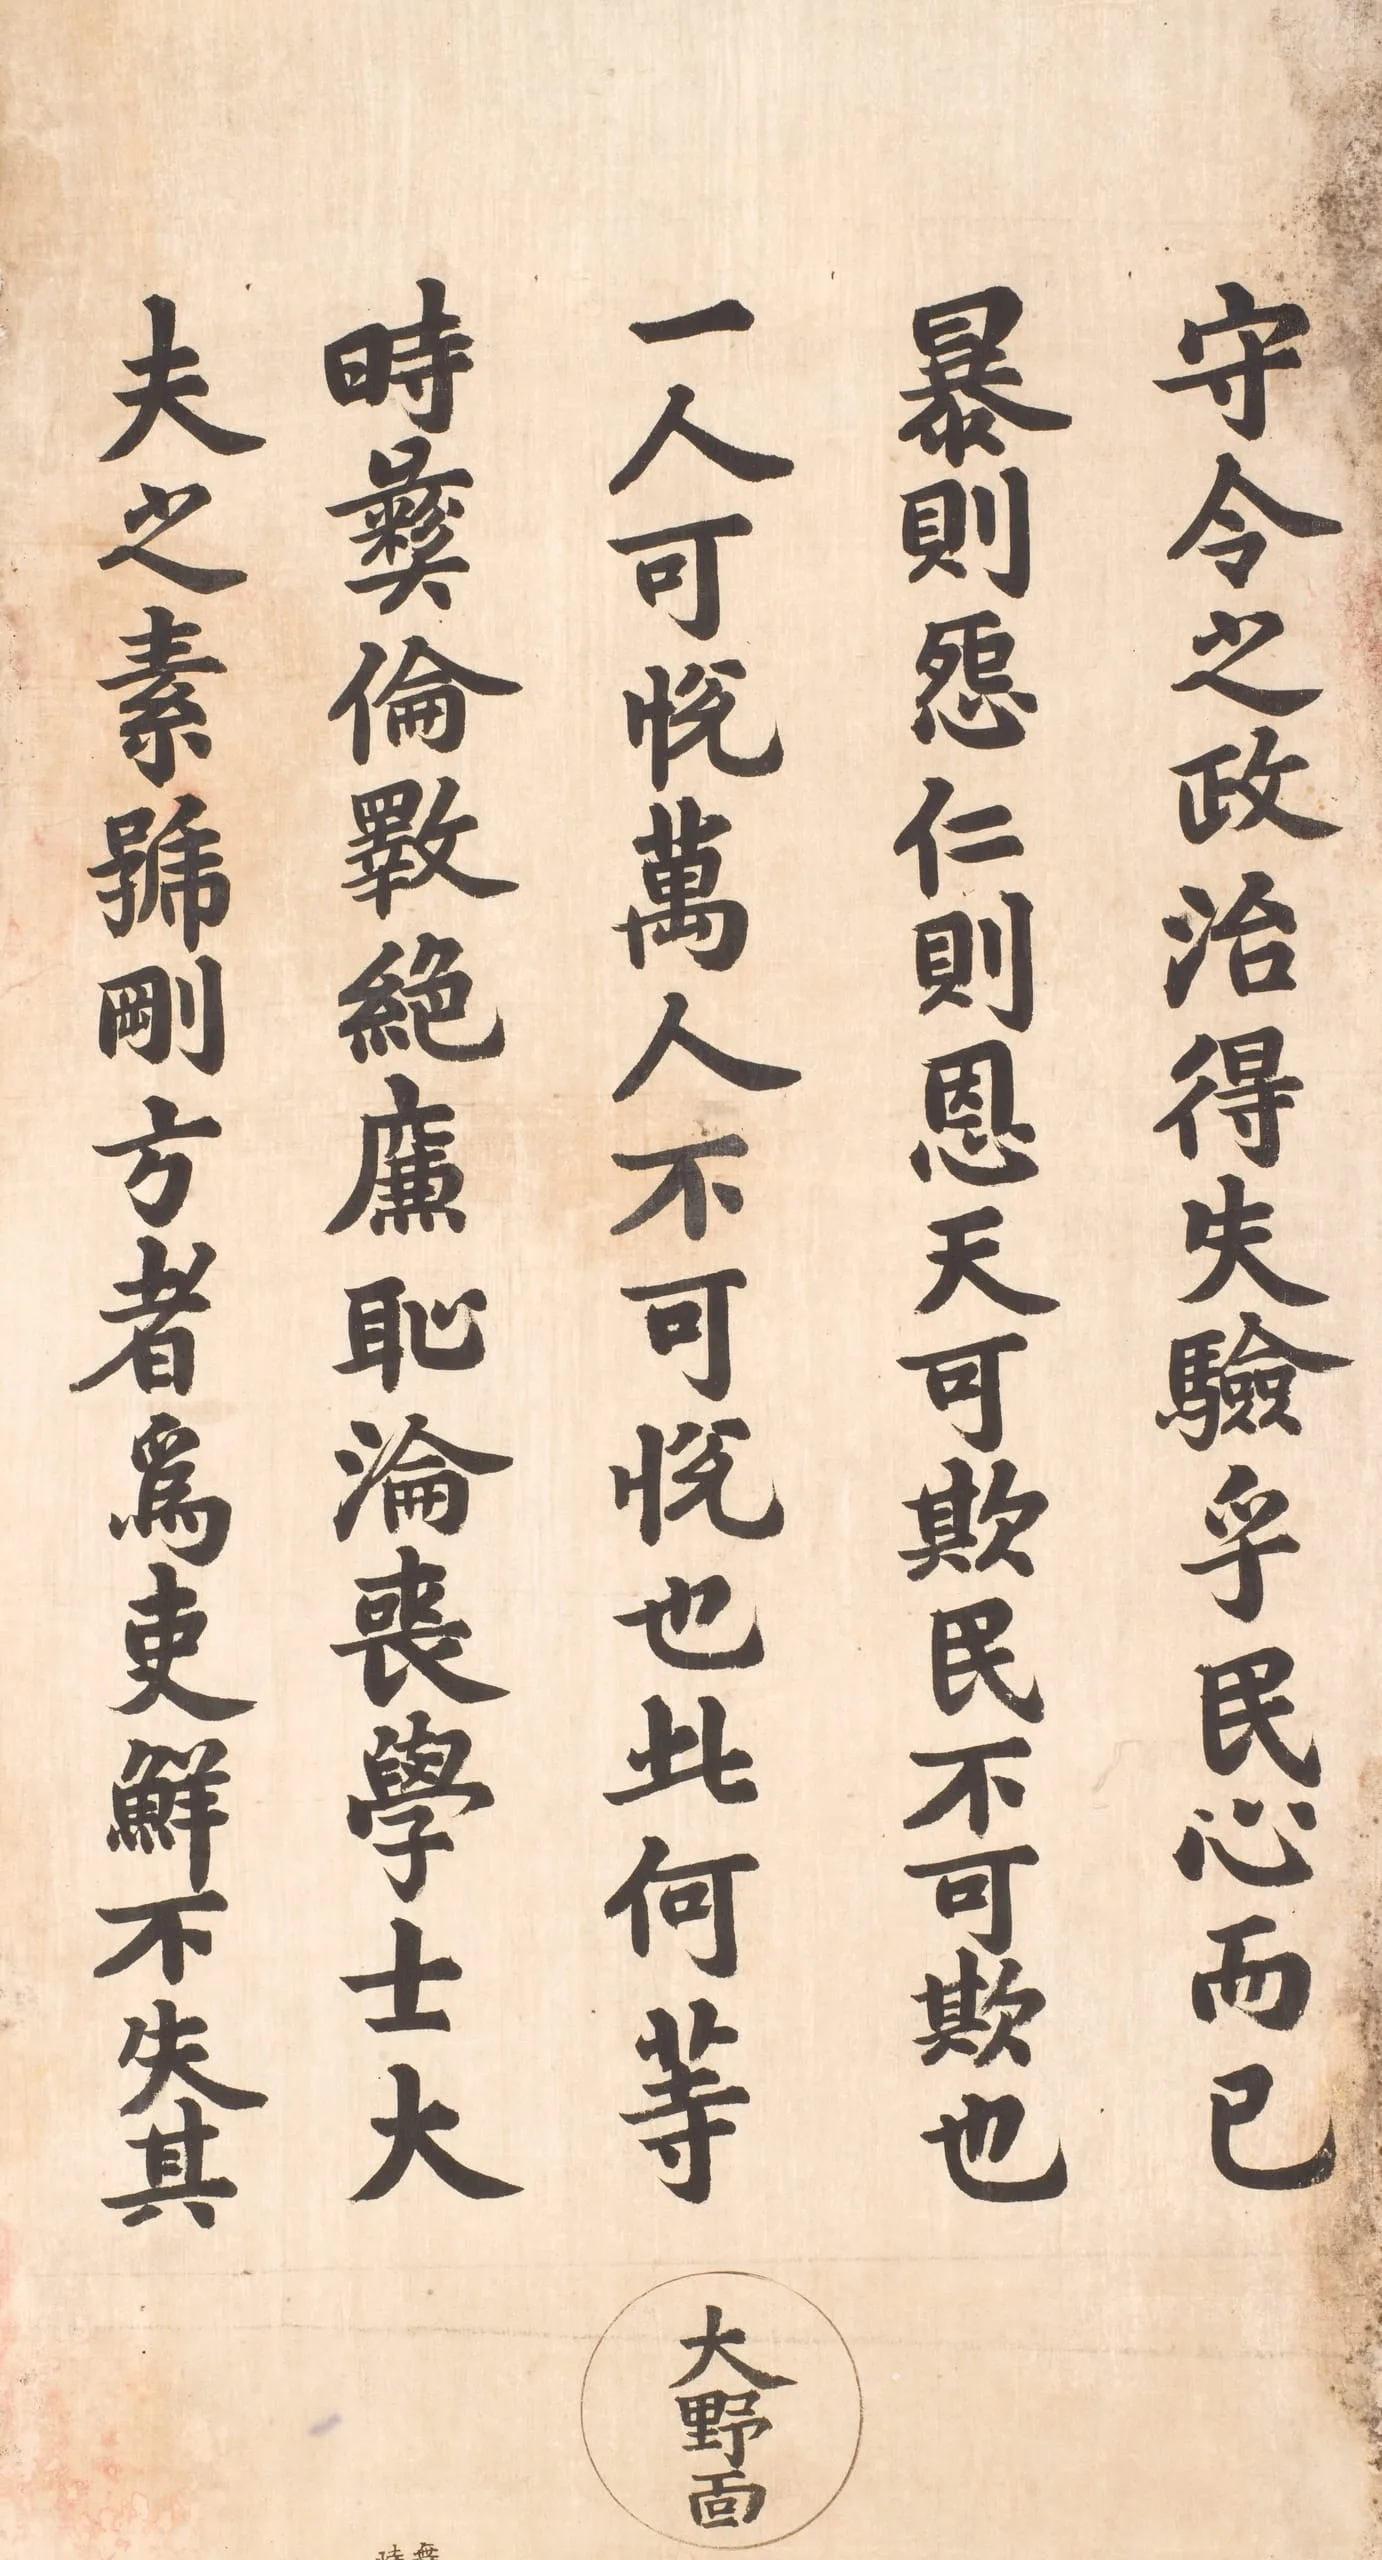 守令之政治得失驗乎民心而已
暴則怨仁則恩天可欺民不可欺也
一人可悅萬人不可悅也此何等
時彜倫斁絕廉恥淪喪學士大
夫之素號剛方者爲吏鮮不失其
大野面
無
時